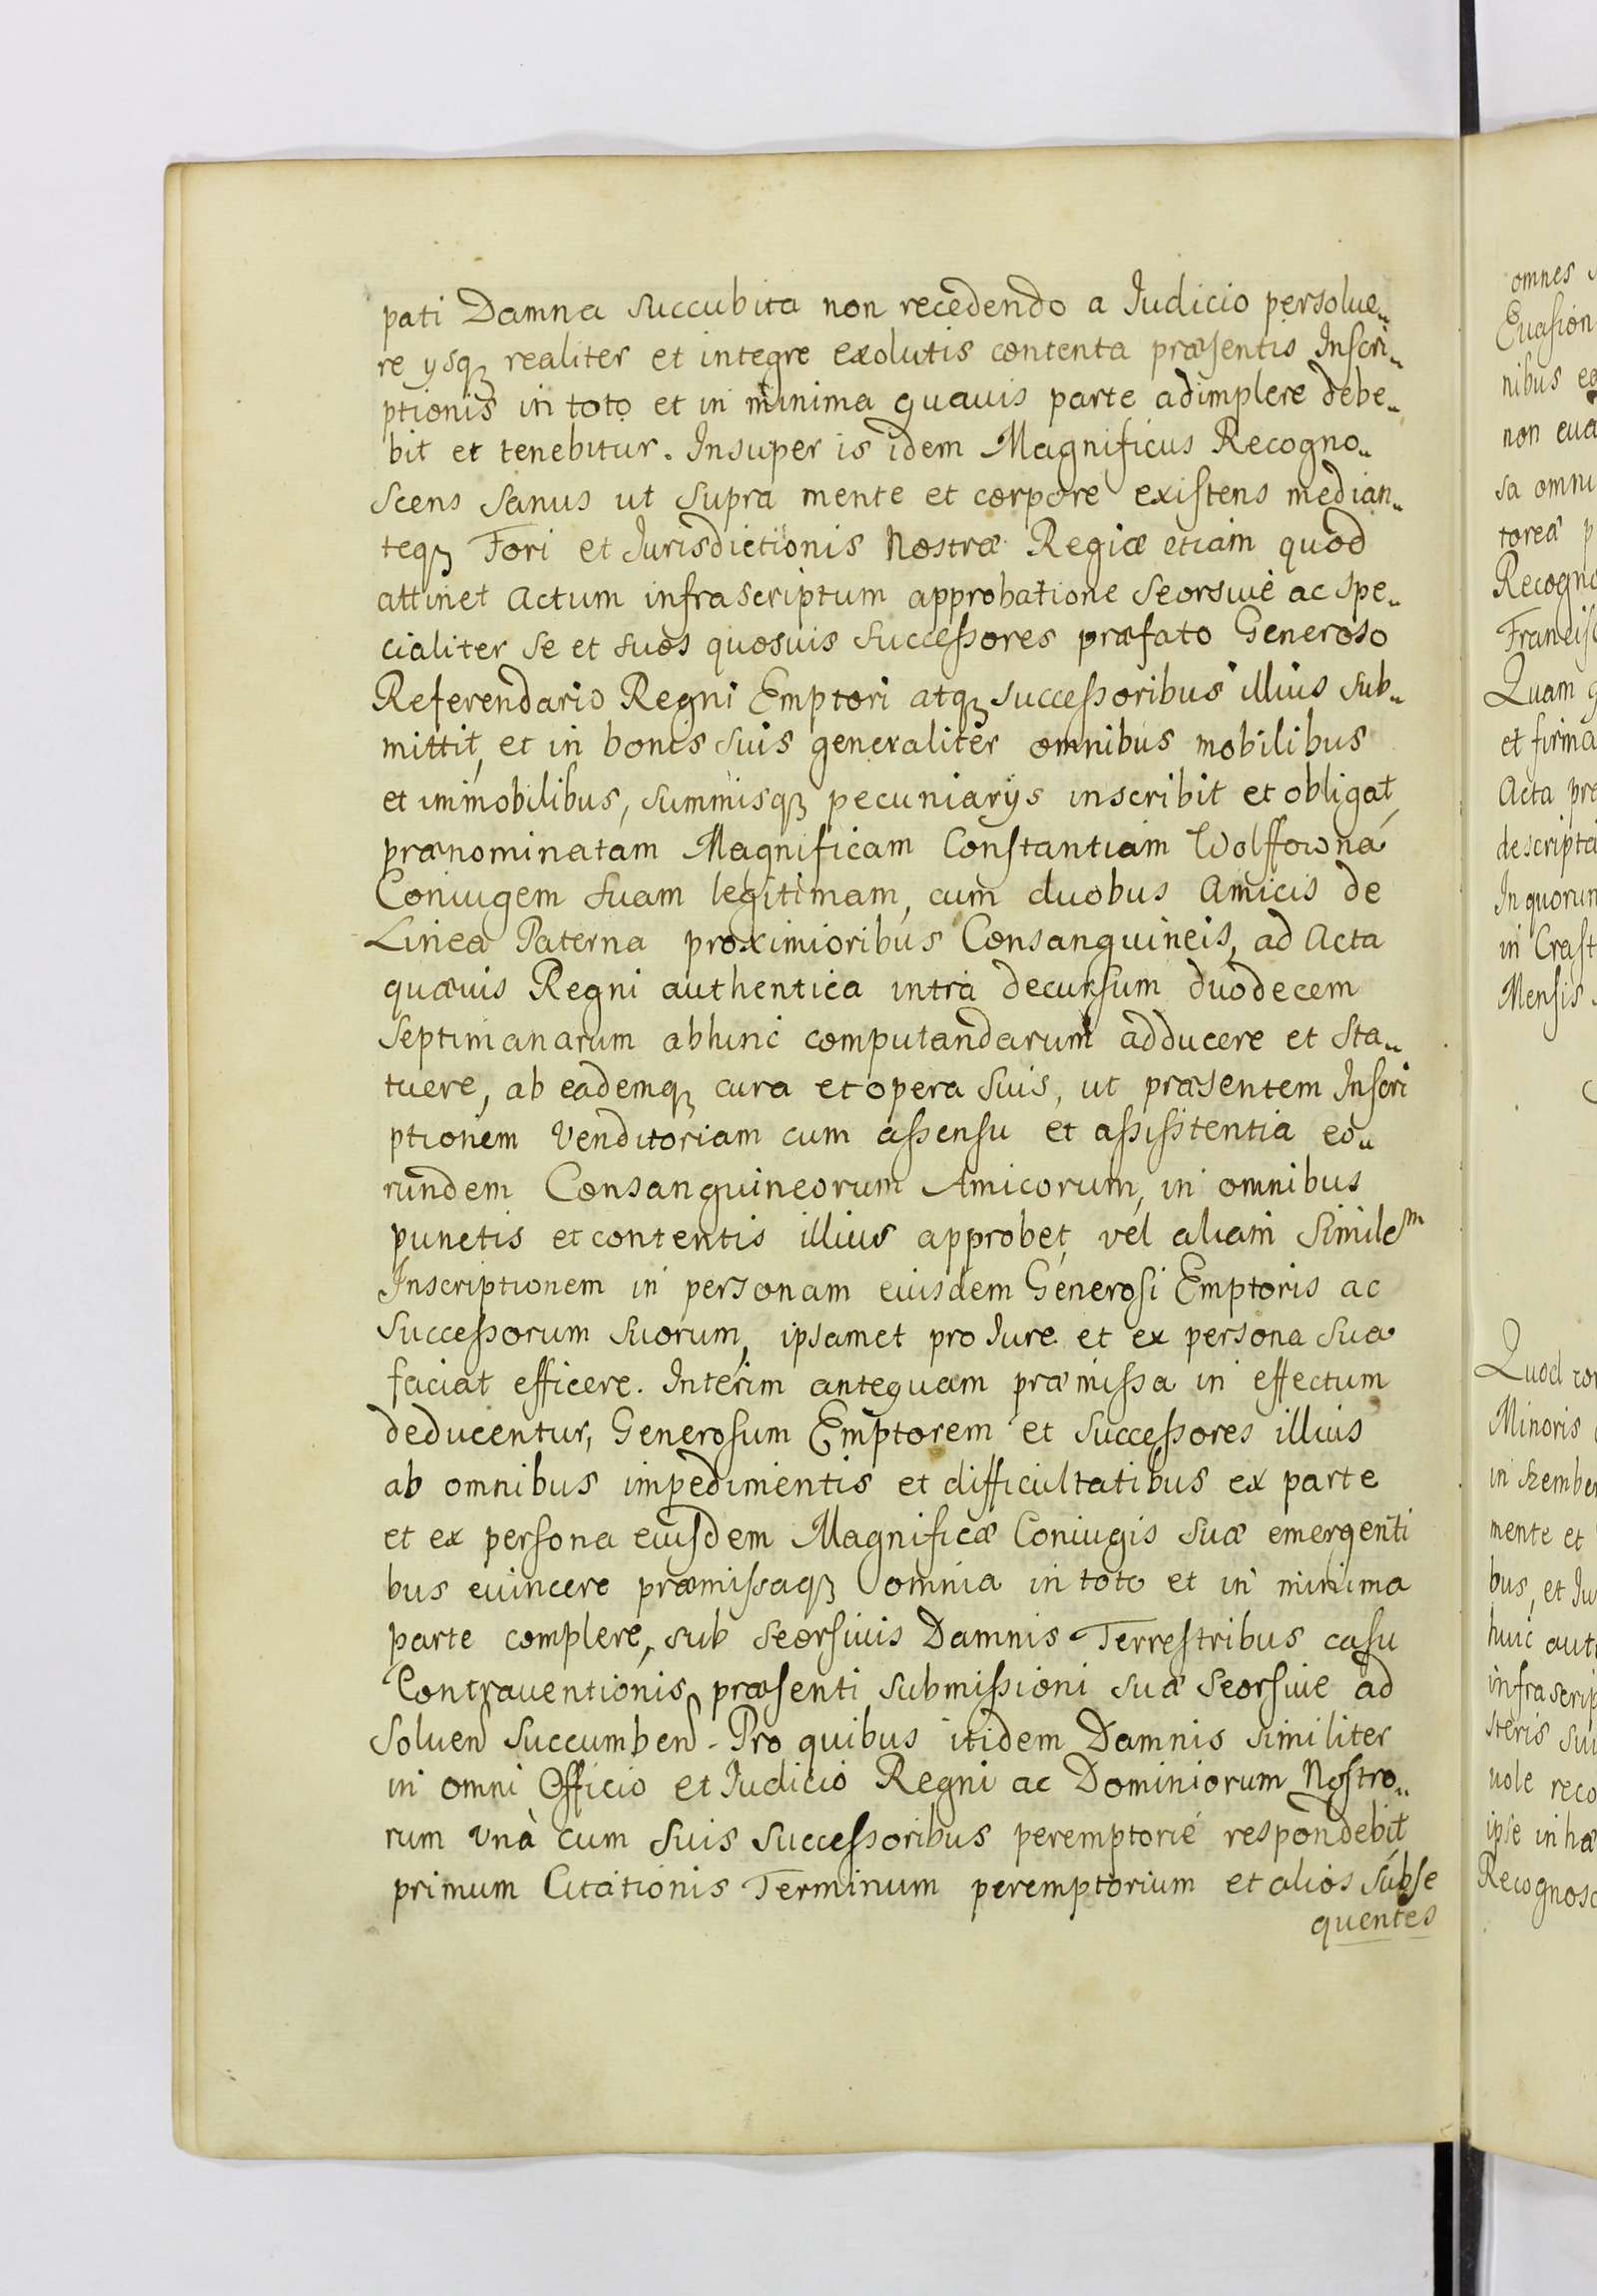 pati Damna succubita non recedendo a Iudicio persolue„
re ysq3 realiter et integre exolutis contenta præsentis Inscri„
ptionis in toto et in minima quauis parte adimplere debe„
bit et tenebitur. Insuper is idem Magnificus Recogno„
scens sanus ut supra mente et corpore existens median„
teq3 Fori et Iurisdictionis Nostræ Regiæ etiam quod
attinet Actum infrascriptum approbatione seorsiue ac spe„
cialiter se et suos quosuis successores præfato Generoso
Referendario Regni Emptori atq3 successoribus illius sub„
mittit, et in bonis suis generaliter omnibus mobilibus
et immobilibus, summisq3 pecuniarÿs inscribit et obligat,
prænominatam Magnificam Constantiam Wolffowna
Coniugem suam legitimam, cum duobus Amicis de
Linea Paterna proximioribus Consanguineis, ad Acta
quæuis Regni authentica intra decursum duodecem
septimanarum abhinc computandarum adducere et sta„
tuere, ab eademq3 cura et opera suis, ut præsentem Inscri
ptionem Venditoriam cum assensu et assistentia eo„
rundem Consanguineorum Amicorum, in omnibus
punctis et contentis illius approbet, vel aliam simile^m
Inscriptionem in personam eiusdem Generosi Emptoris ac
successorum suorum, ipsamet pro Iure et ex persona sua
faciat efficere. Interim antequam præmissa in effectum
deducentur, Generosum Emptorem et successores illius
ab omnibus impedimentis et difficultatibus ex parte
et ex persona eiusdem Magnificæ Coniugis suæ emergenti
bus euincere præmissaq3 omnia in toto et in minima
parte complere, sub seorsiuis Damnis Terrestribus casu
Contrauentionis præsenti submissioni suæ seorsiue ad
soluen succumben. Pro quibus itidem Damnis similiter
in omni Officio et Iudicio Regni ac Dominiorum Nostro„
rum Vnà cum suis successoribus peremptorié respondebit
primum Citationis Terminum peremptorium et alios subse
quentes
omnes
Euasion
nibus
non eua
sa omni
toreæ p
Recogno
Francisc
Quam
et firma
Acta pre
descripta
In quorum
in Crast
Mensis
Quod
Minoris
in Szembe
mente et
bus, et Iu
hunc aut
infrascrip
steris sui
uole reco
ipse in hæ
Recognosc